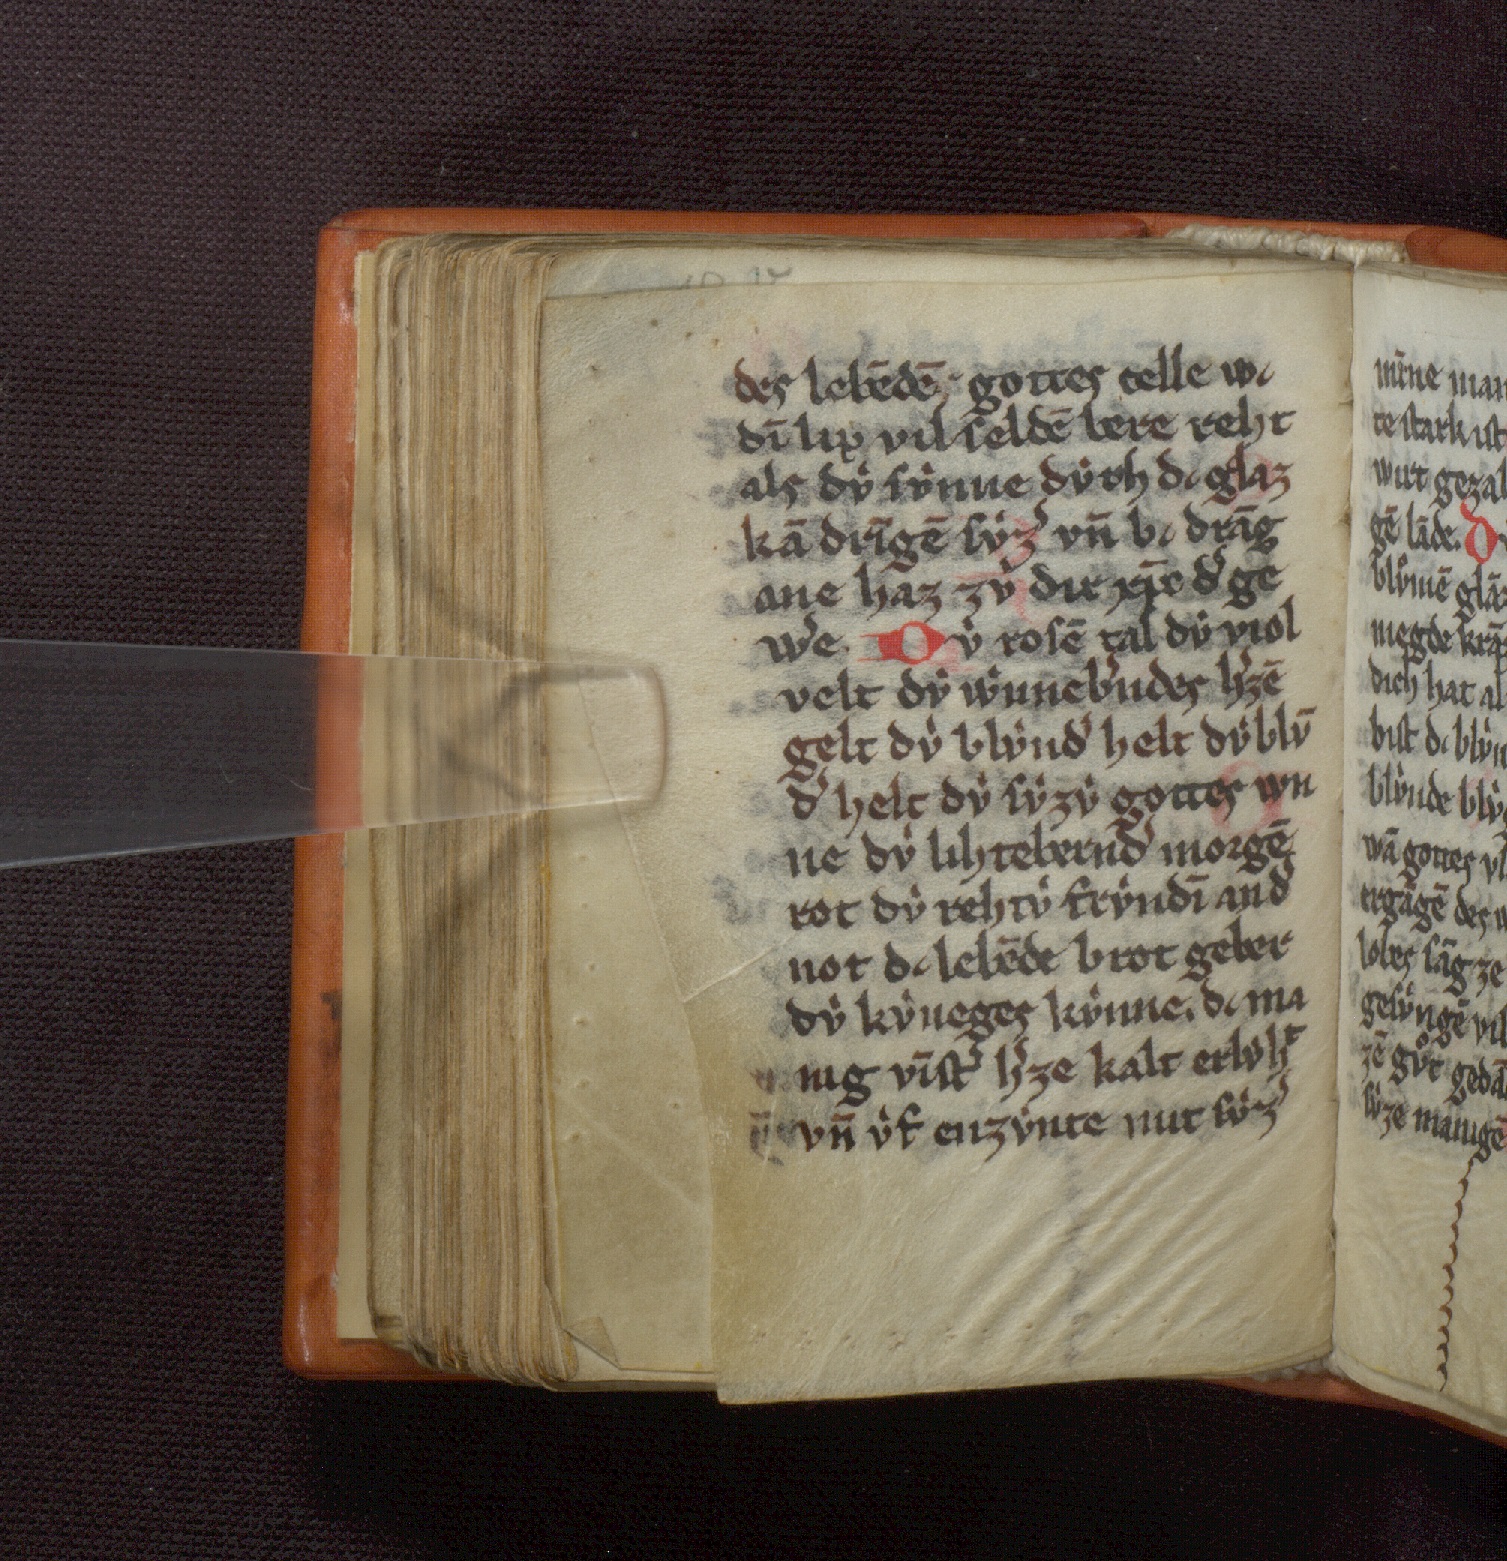 des lebēdē gottes celle w
dī lip vil seldē bere reht
als dv́ sv́nne dv́rh d glaz
kā drīgē sv́z vn̄ b drāg
ane haz zv́ dir xp̄e d' ge
w'e. Dv́ rosē tal dv́ viol
velt dv́ wv́nneb'ndes h'zē
gelt dv́ blv́nd' helt dv́ blv̄
d' helt dv́ sv́zv́ gottes wn
ne dv́ lihtebernd' morgē
rot dv́ rehtv́ frv́ndī and'
not d lebēde brot geber
dv́ kv́neges kv́nne. d ma
nig vīst' h'ze kalt erlv́ht
vn̄ v́f enzv́nte mit sv́z'
mīne man
te stark ist
wirt gezal
gē lāde. D
blv́mē glāz
megde krā
dich hat al
bist d blv́n
blv́nde blv́
wā gottes
ergāgē des
lobes sāg ze
gesv́ngē vil
zē gv́t gedā
sv́ze manigē